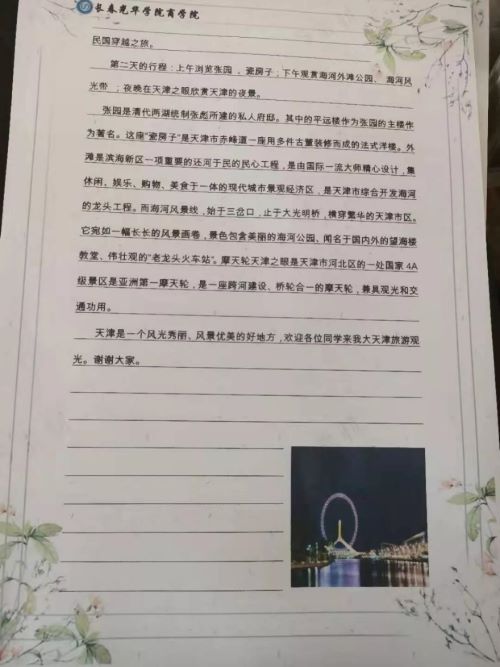 长春光华学院商学院
民国穿越之旅。
第二天的行程：上午浏览张园 、瓷房子；下午观赏海河外滩公园、 海河风
光带 ；夜晚在天津之眼欣赏天津的夜景。
张园是清代两湖统制张彪所建的私人府邸。其中的平远楼作为张园的主楼作
为著名。这座“瓷房子”是天津市赤峰道一座用多件古董装修而成的法式洋楼。外
滩是滨海新区一项重要的还河于民的民心工程，是由国际一流大师精心设计，集
休闲、娱乐、购物、美食于一体的现代城市景观经济区，是天津市综合开发海河
的龙头工程。而海河风景线，始于三岔口，止于大光明桥，横穿繁华的天津市区。
它宛如一幅长长的风景画卷，景色包含美丽的海河公园、闻名于国内外的望海楼
教堂、伟壮观的“老龙头火车站”。摩天轮天津之眼是天津市河北区的一处国家 4A
级景区是亚洲第一摩天轮，是一座跨河建设、桥轮合一的摩天轮，兼具观光和交
通功用。
天津是一个风光秀丽、风景优美的好地方，欢迎各位同学来我大天津旅游观
光。谢谢大家。